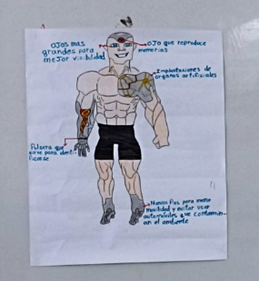 OJOS MAS
grandes para
mejor visibilidad
OJO que reproduce
memorias
Implantaciones de
organos artificiales
Pulsera que
sirve para identi-
ficarse
para mejor
movilidad y evitar usar
automóviles que contaminan
en el ambiente